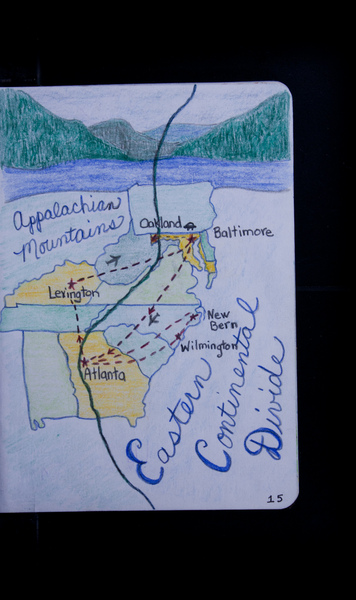 Appalachian
Mountains
Oakland
Baltimore
Lexington
New
Bern
Wilmington
Atlanta
Eastern
Continental
Divide
15